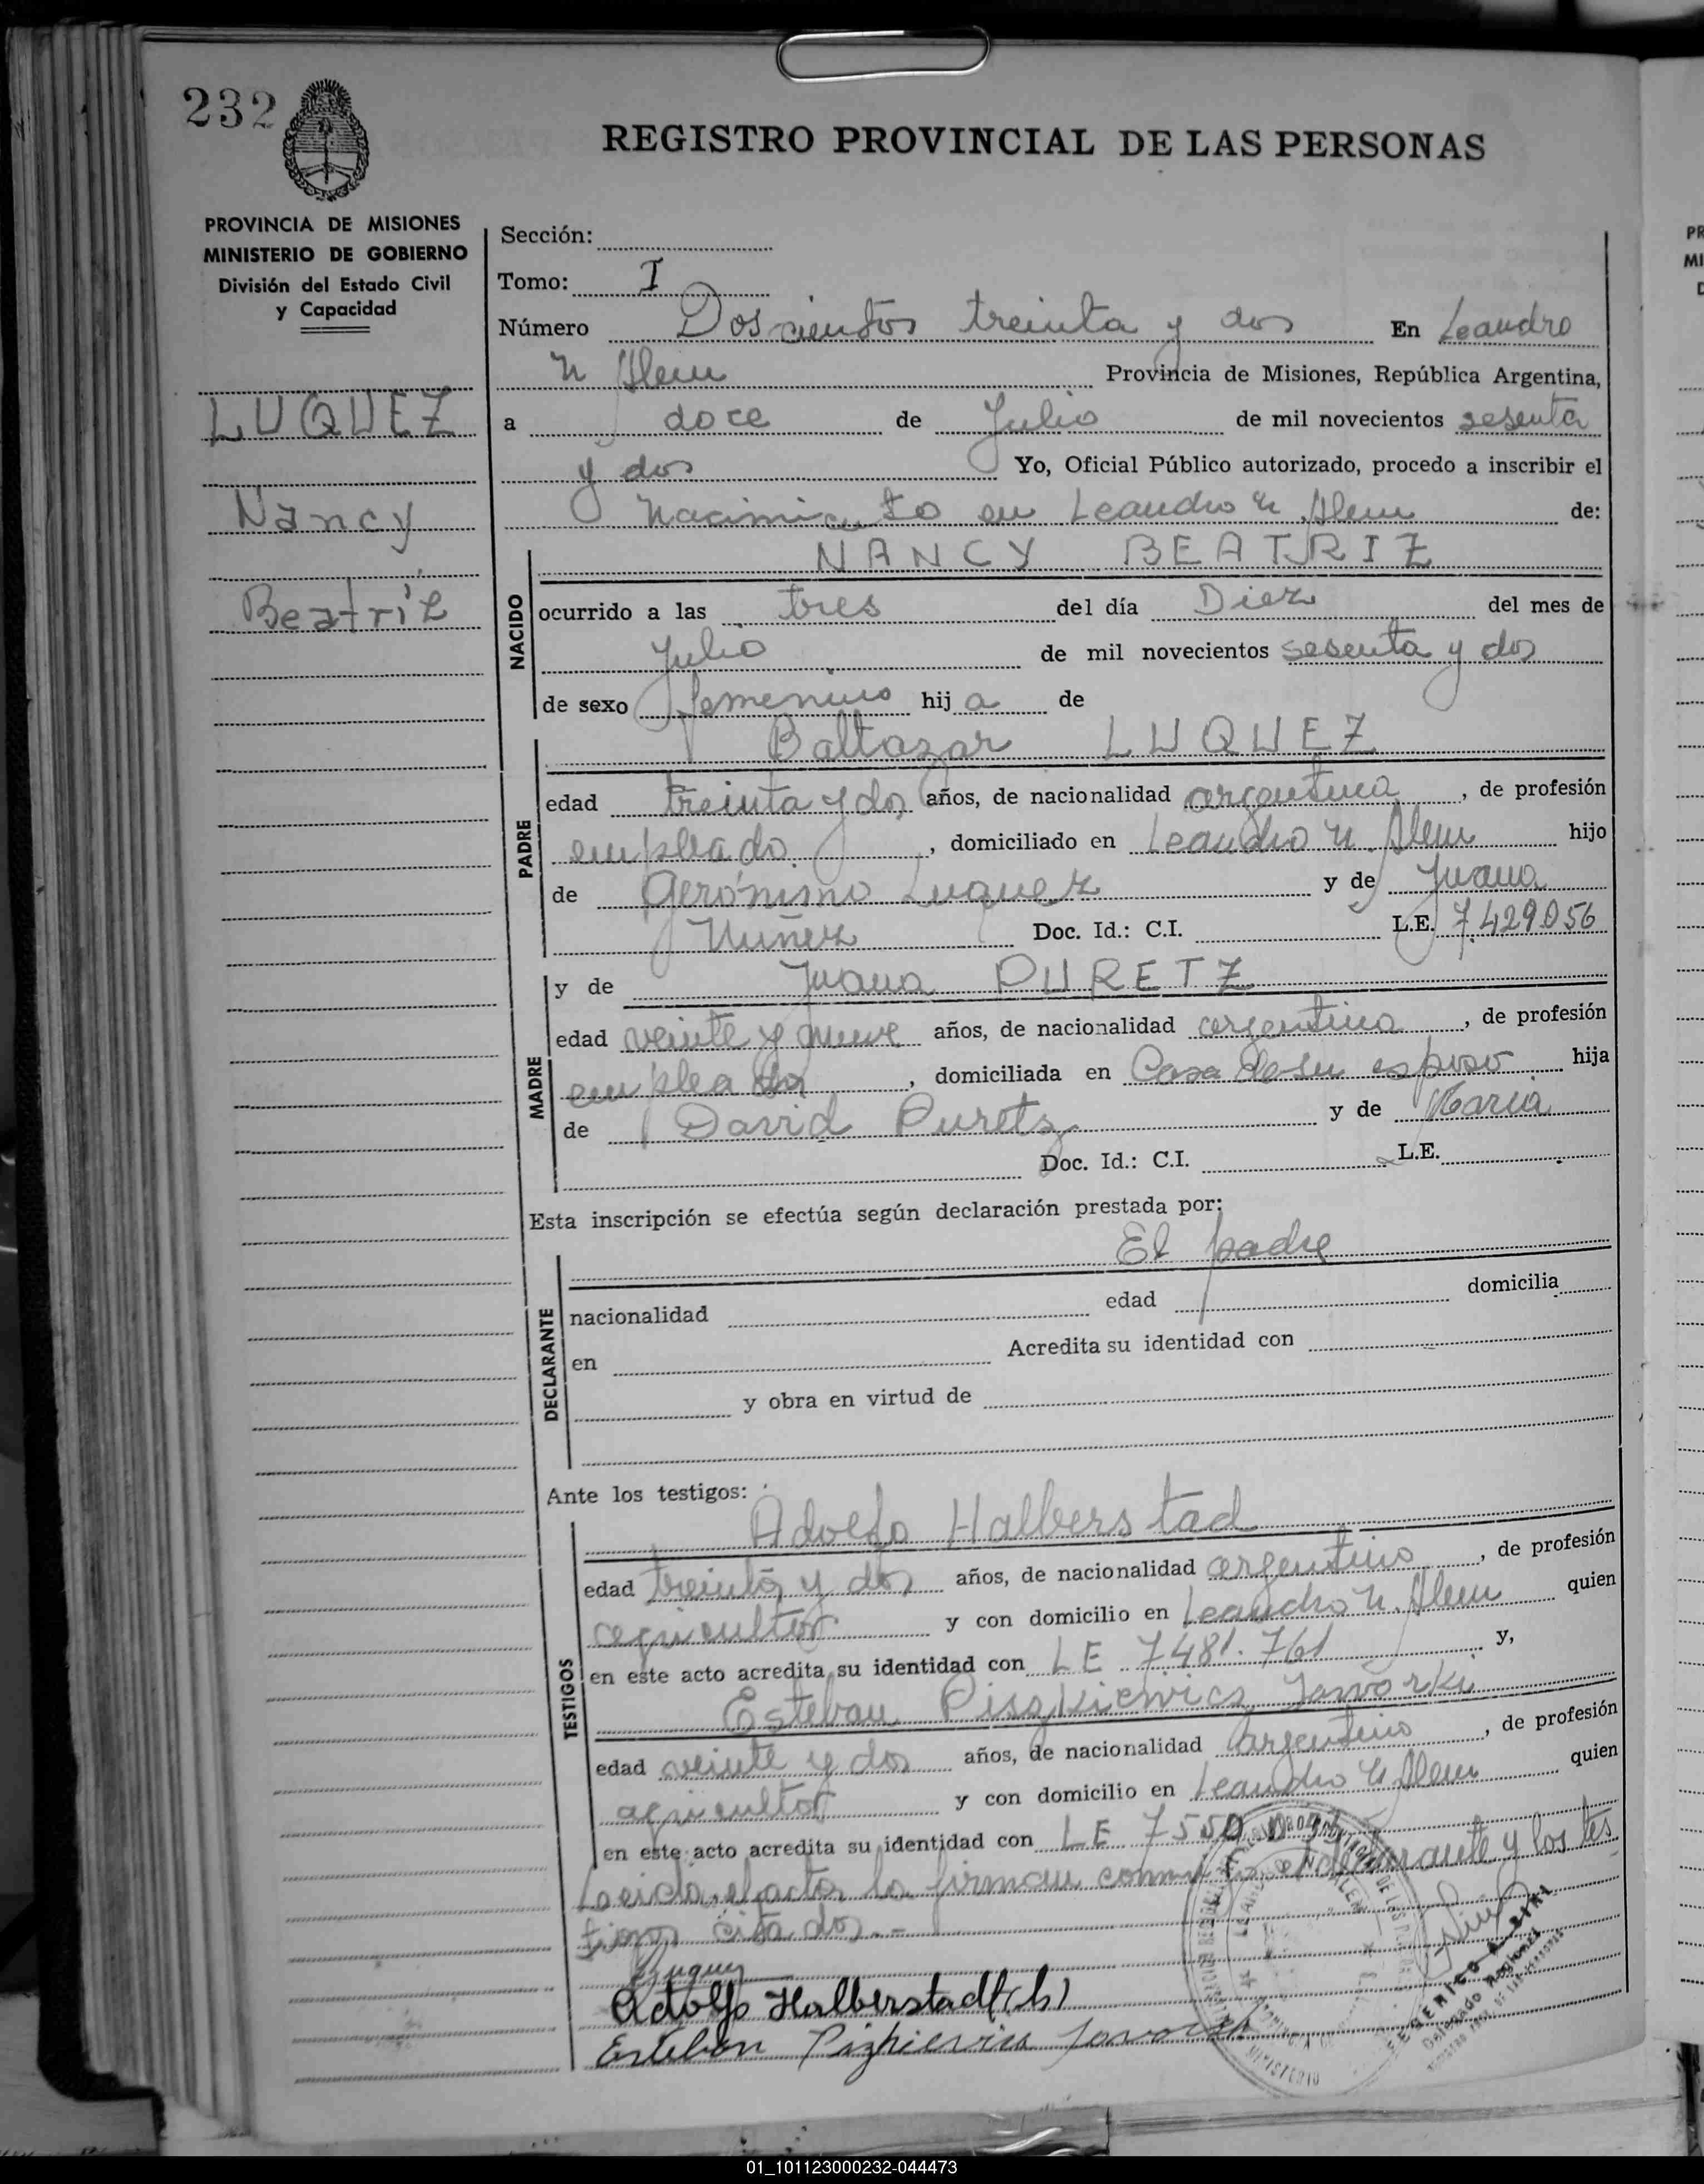 232
REGISTRO PROVINCIAL DE LAS PERSONAS
PROVINCIA DE MISIONES
MINISTERIO DE GOBIERNO
División del Estado Civil
y Capacidad
LUQUEZ
Nancy
Beatriz
Sección:
Tomo: I
Número Doscientos treinta y dos En Leandro
N Alem Provincia de Misiones, República Argentina,
a doce de Julio de mil novecientos sesenta
y dos Yo, Oficial Público autorizado, procedo a inscribir el
Nacimiento en Leandro N. Alem de:
NACIDO
NANCY BEATRIZ
ocurrido a las tres del día Diez del mes de
Julio de mil novecientos sesenta y dos
de sexo femenino hij a de
PADRE
Baltazar LUQUEZ
edad treinta y dos años, de nacionalidad argentina, de profesión
empleado, domiciliado en Leandro N. Alem hijo
de Gerónimo Luquez y de Juana
Nuñez Doc. Id.: C.I. L.E. 7.429.056
MADRE
y de Juana PURETZ
edad veinte y nueve años, de nacionalidad argentina, de profesión
empleada, domiciliada en Casa de su esposo hija
de David Puretz y de Maria
Doc. Id.: C.I. L.E.
Esta inscripción se efectúa según declaración prestada por:
DECLARANTE
El padre
nacionalidad edad domicilia
en Acredita su identidad con
y obra en virtud de
Ante los testigos:
TESTIGOS
Adolfo Halberstad
edad treinta y dos años, de nacionalidad argentino, de profesión
agricultor y con domicilio en Leandro N. Alem quien
en este acto acredita su identidad con LE 7.481.761 y,
Esteban Piszkiewicz Jaworki
edad veinte y dos años, de nacionalidad argentino, de profesión
agricultor y con domicilio en Leandro N Alem quien
en este acto acredita su identidad con LE 7550
Leida el acta la firman conmigo el declarante y los tes
tigos citados.-
Luquez
Adolfo Halberstadt (h)
Esteban
FEDERICO
Delegado Regional
MINISTERIO
01_101123000232-044473